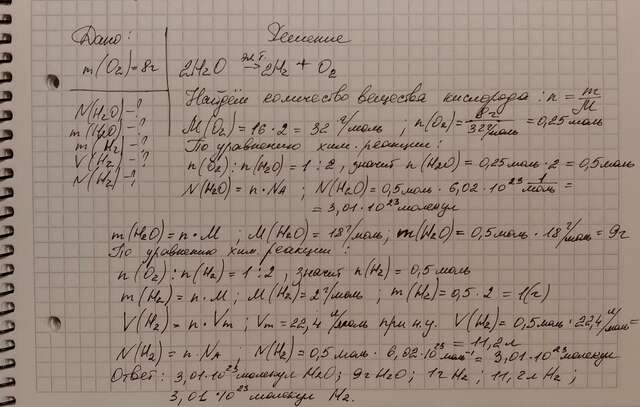 Дано:
m(O₂)=8г
N(H₂O)-?
m(H₂O)-?
m(H₂)-?
V(H₂)-?
N(H₂)-?
Решение
2H₂O эл.т→ 2H₂ + O₂
Найдём количество вещества кислорода: n = m/M
M(O₂) = 16·2 = 32 г/моль ; n(O₂) = 8г/32г/моль = 0,25 моль
По уравнению хим. реакции:
n(O₂) : n(H₂O) = 1 : 2, значит n(H₂O) = 0,25 моль · 2 = 0,5 моль
N(H₂O) = n·Nₐ ; N(H₂O) = 0,5 моль · 6,02·10²³ 1/моль =
= 3,01·10²³ молекул
m(H₂O) = n·M ; M(H₂O) = 18 г/моль ; m(H₂O) = 0,5 моль · 18 г/моль = 9г
По уравнению хим. реакции:
n(O₂) : n(H₂) = 1:2 , значит n(H₂) = 0,5 моль
m(H₂) = n·M ; M(H₂) = 2 г/моль ; m(H₂) = 0,5·2 = 1(г)
V(H₂) = n·Vm ; Vm = 22,4 л/моль при н.у. V(H₂) = 0,5 моль · 22,4 л/моль =
= 11,2 л
N(H₂) = n·Nₐ ; N(H₂) = 0,5 моль · 6,02·10²³ моль⁻¹ = 3,01·10²³ молекул
Ответ: 3,01·10²³ молекул H₂O; 9г H₂O; 1г H₂ ; 11,2л H₂ ;
3,01·10²³ молекул H₂.